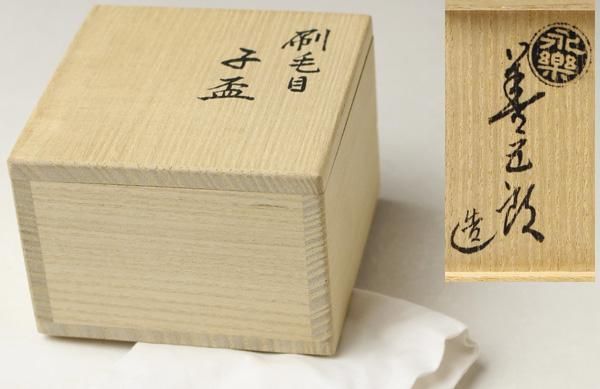 刷毛目
子盃
永樂
善五郎
造